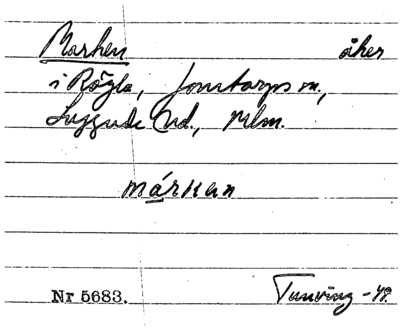 Marken åker
i Rögla, Jonstorps sn,
Luggude hd., Mlm.
márkan
Nr 5683. Tunving -48.